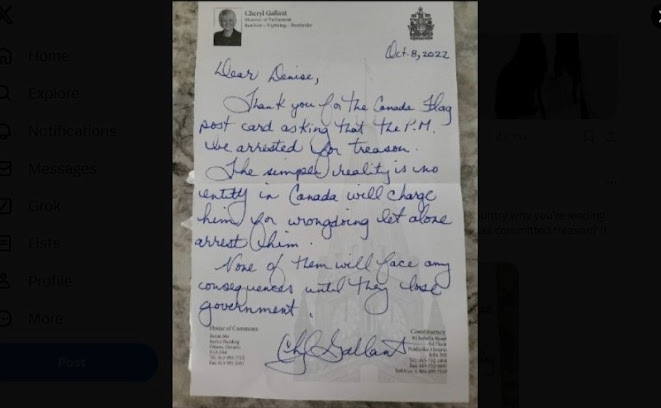 Home
Explore
Notifications
Messages
Grok
Lists
Profile
More
Post
Cheryl Gallant
Member of Parliament
Renfrew – Nipissing – Pembroke
Oct. 8, 2022
Dear Denise,
Thank you for the Canada Flag
post card asking that the P.M.
be arrested for treason.
The simple reality is no
entity in Canada will charge
him for wrongdoing let alone
arrest him.
None of them will face any
consequences until they lose
government.
Ch Gallant
House of Commons
Ottawa, Ontario
Constituency
Pembroke, Ontario